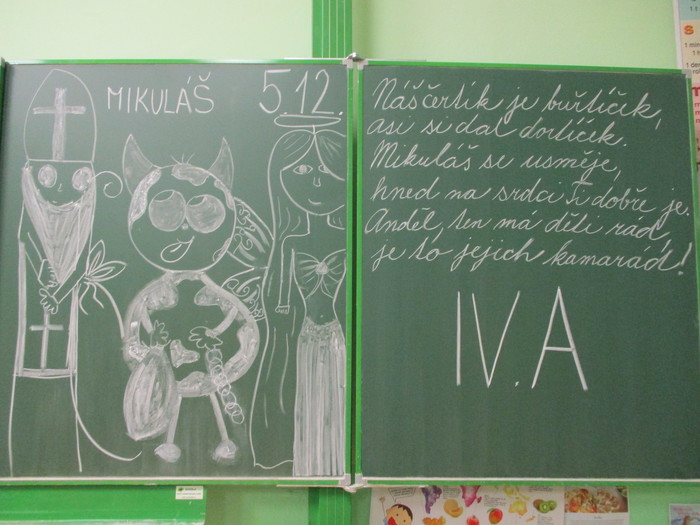 MIKULÁŠ 5.12.
Náš čertík je buřtíčík,
asi si dal dortíček.
Mikuláš se usměje,
hned na srdci Ti dobře je.
Anděl, ten má děti rád,
je to jejich kamarád!
IV.A